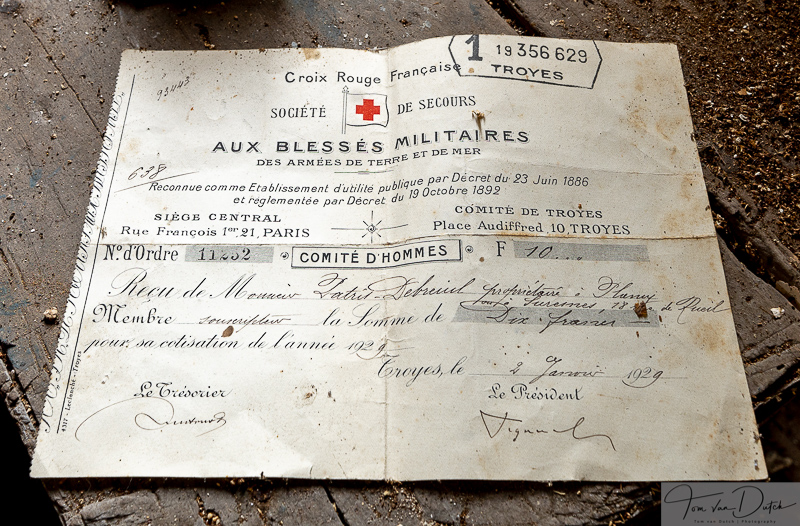 1 19 356 629
TROYES
Croix Rouge Française
93443
SOCIÉTÉ DE SECOURS
AUX BLESSÉS MILITAIRES
DES ARMÉES DE TERRE ET DE MER
638
Reconnue comme Etablissement d'utilité publique par Décret du 23 Juin 1886
et réglementée par Décret du 19 Octobre 1892
SIÈGE CENTRAL
Rue François 1er, 21, PARIS
COMITÉ DE TROYES
Place Audiffred, 10, TROYES
No. d'Ordre 11252 COMITÉ D'HOMMES F 10
Reçu de Monsieur Debreuil propriétaire à Plancy
à Suresnes, 18 de Rueil
Membre souscripteur la Somme de Dix francs
pour sa cotisation de l'année 1929
Troyes, le 2 Janvier 1929
Le Trésorier Le Président
4317 - Leclanché - Troyes
Tom van Dutch
Tom van Dutch | Photography